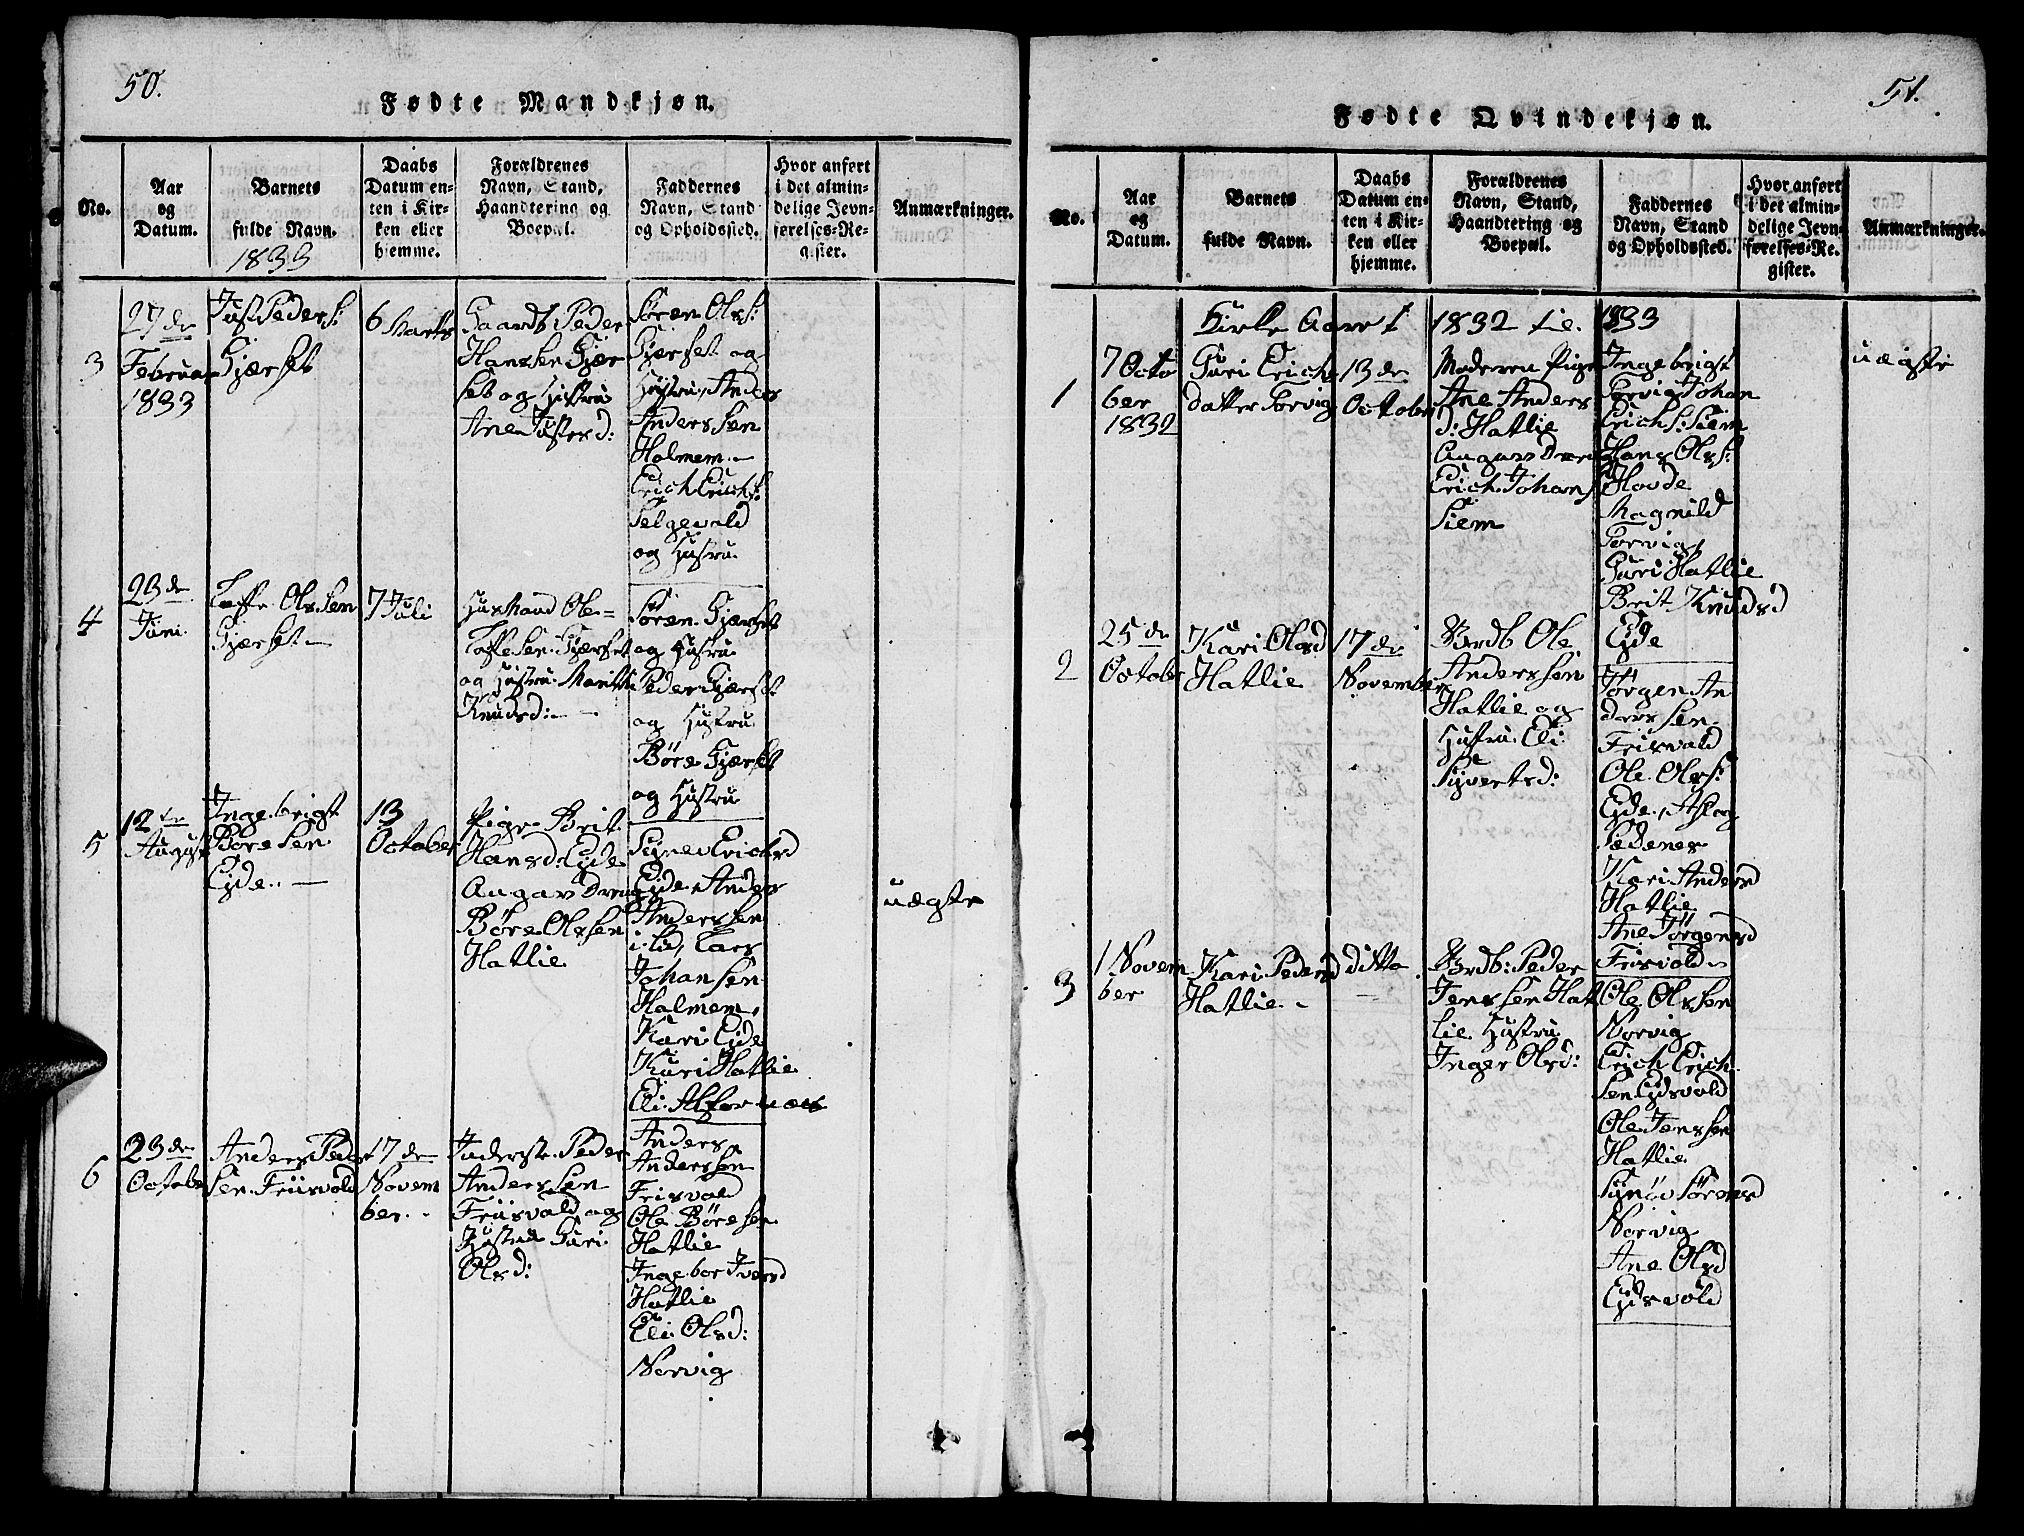 50.
Fødte Mandkjøn.
No.
Aar
og
Datum.
Barnets
fulde Navn.
1833
Daabs
Datum en-
ten i Kir-
ken eller
hjemme.
Forældrenes
Navn, Stand,
Haandtering og
Boepæl.
Faddernes
Navn, Stand
og Opholdssted.
Hvor anført
i det almin-
delige Jevn-
førelses-Re-
gister.
Anmærkninger.
3
27de
Februar
1833
Just Peders:
Gjærset
6 Marts
Gaardb. Peder
Hanssen Gjær
set og Hustru
Ane Justersd:
Søren Olss:
Gjærset og
Hustru, Anders
Anderssen
Holmem.-
Erich Erichs:
Selgevold
og Hustru.
4
23de
Juni
Toffe Olssen
Gjærset-
7 Juli
Husmand Ole-
Toffesen Gjærset
og Hustru Marithe
Knudsd:-
Søren Gjærset
og Hustru
Peder Gjærset
og Hustru
Børe Gjærset
og Hustru
5
12te
August
Ingebrigt
Børesen
Ejde.-
13
October
Pige Brit
Hansd. Ejde
Angav Dreng
Børe Olssen
Hatlie
Signe Erichsd
Ejde, Anders
Anderssen
i Lid, Lars
Johansen
Holmem,
Kari Ejde
Kari Hatlie
Eli Alfarnæs
uægte
6
23de
October
Anders Peder
sen Friisvold
17de
Novem
ber.-
Inderste Peder
Anderssen
Friisvold og
Hustru Guri
Olsd:
Anders
Anderssen
Frisvold
Ole Børesen
Hatlie
Ingebor Iversd
Hatlie
Eli Olsd:
Norvig
51.
Fødte Qvindekjøn.
No.
Aar
og
Datum.
Barnets
fulde Navn.
Daabs
Datum en-
ten i Kir-
ken eller
hjemme.
Forældrenes
Navn, Stand,
Haandtering og
Boepæl.
Faddernes
Navn, Stand
og Opholdssted.
Hvor anført
i det almin-
delige Jevn-
førelses-Re-
gister.
Anmærkninger.
Kirke Aaret 1832 til 1833
1
7 Octo
ber
1832
Guri Erichs
datter Torvig
13de
October
Moderen Pige
Ane Anders
d: Hatlie
Angav Dreng
Erich Johans
Siem
Ingebrigt
Torvig, Johan
Erichs: Siem
Hans Olss:
Hovde
Magnild
Torvig,
Guri Hatlie
Brit Knudsd
Ejde
uægte
2
25de
October
Kari Olsd
Hatlie
17de
November
Brdb Ole
Anderssen
Hatlie og
Hustru Eli
Syvertsd:
Jørgen An
derssen
Frisvald
Ole Olss:
Ejde, Aslog
Sædenes
Kari Andersd
Hatlie
Ane Jørgensd
Frisvold-
3
1 Novem
ber
Kari Pedersd
Hatlie.-
ditto
Brdb: Peder
Jenssen Hat
lie Hustru
Inger Olsd:
Ole Olssen
Norvig
Erich Erich
sen Ejdsvold
Ole Jenssen
Hatlie
Synøv Sørensd
Norvig
Ane Olsd
Ejdsvold